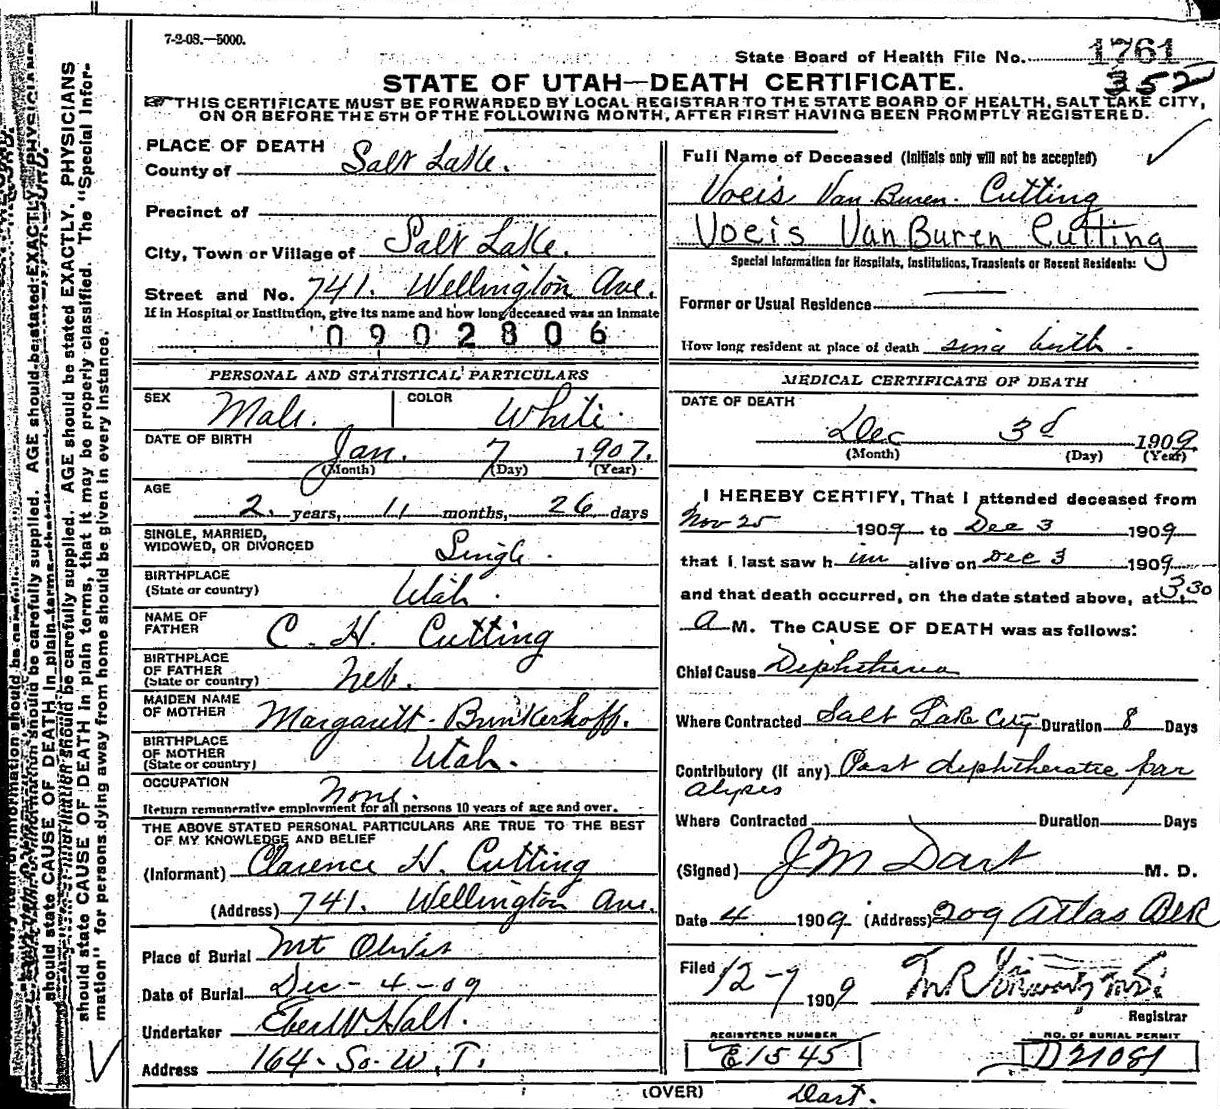 7-2-08.—5000.
State Board of Health File No. 1761
352
STATE OF UTAH—DEATH CERTIFICATE.
THIS CERTIFICATE MUST BE FORWARDED BY LOCAL REGISTRAR TO THE STATE BOARD OF HEALTH, SALT LAKE CITY,
ON OR BEFORE THE 5TH OF THE FOLLOWING MONTH, AFTER FIRST HAVING BEEN PROMPTLY REGISTERED.
PLACE OF DEATH
County of Salt Lake.
Precinct of
City, Town or Village of Salt Lake.
Street and No. 741. Wellington Ave.
If in Hospital or Institution, give its name and how long deceased was an inmate
0902806
PERSONAL AND STATISTICAL PARTICULARS
SEX Male. COLOR White.
DATE OF BIRTH Jan. 7 1907.
(Month) (Day) (Year)
AGE
2 years, 11 months, 26 days
SINGLE, MARRIED,
WIDOWED, OR DIVORCED Single.
BIRTHPLACE
(State or country) Utah.
NAME OF
FATHER C. H. Cutting
BIRTHPLACE
OF FATHER
(State or country) Neb.
MAIDEN NAME
OF MOTHER Margarett Brinkerhoff.
BIRTHPLACE
OF MOTHER
(State or country) Utah.
OCCUPATION None.
Return remunerative employment for all persons 10 years of age and over.
THE ABOVE STATED PERSONAL PARTICULARS ARE TRUE TO THE BEST
OF MY KNOWLEDGE AND BELIEF
(Informant) Clarence H. Cutting
(Address) 741. Wellington Ave.
Place of Burial Mt Olivet
Date of Burial Dec - 4 - 09
Undertaker Eber W Hall.
Address 164 - So. W. T.
Full Name of Deceased (Initials only will not be accepted)
Voeis Van Buren Cutting
Voeis Van Buren Cutting
Special Information for Hospitals, Institutions, Transients or Recent Residents:
Former or Usual Residence
How long resident at place of death since birth.
MEDICAL CERTIFICATE OF DEATH
DATE OF DEATH
Dec 3d 1909
(Month) (Day) (Year)
I HEREBY CERTIFY, That I attended deceased from
Nov 25 1909 to Dec 3 1909
that I last saw h im alive on Dec 3 1909
and that death occurred, on the date stated above, at 3 30
A M. The CAUSE OF DEATH was as follows:
Chief Cause Diphtheria
Where Contracted Salt Lake City Duration 8 Days
Contributory (if any) Post diphtheratic par
alyses
Where Contracted Duration Days
(Signed) J M Dart M. D.
Date 4 1909 (Address) 209 Atlas Blk
Filed 12-7 1909
Registrar
REGISTERED NUMBER
E1545
NO. OF BURIAL PERMIT
D21081
(OVER)
Dart.
AGE should be stated EXACTLY. PHYSICIANS
should state CAUSE OF DEATH in plain terms, that it may be properly classified. The "Special Infor-
mation" for persons dying away from home should be given in every instance.